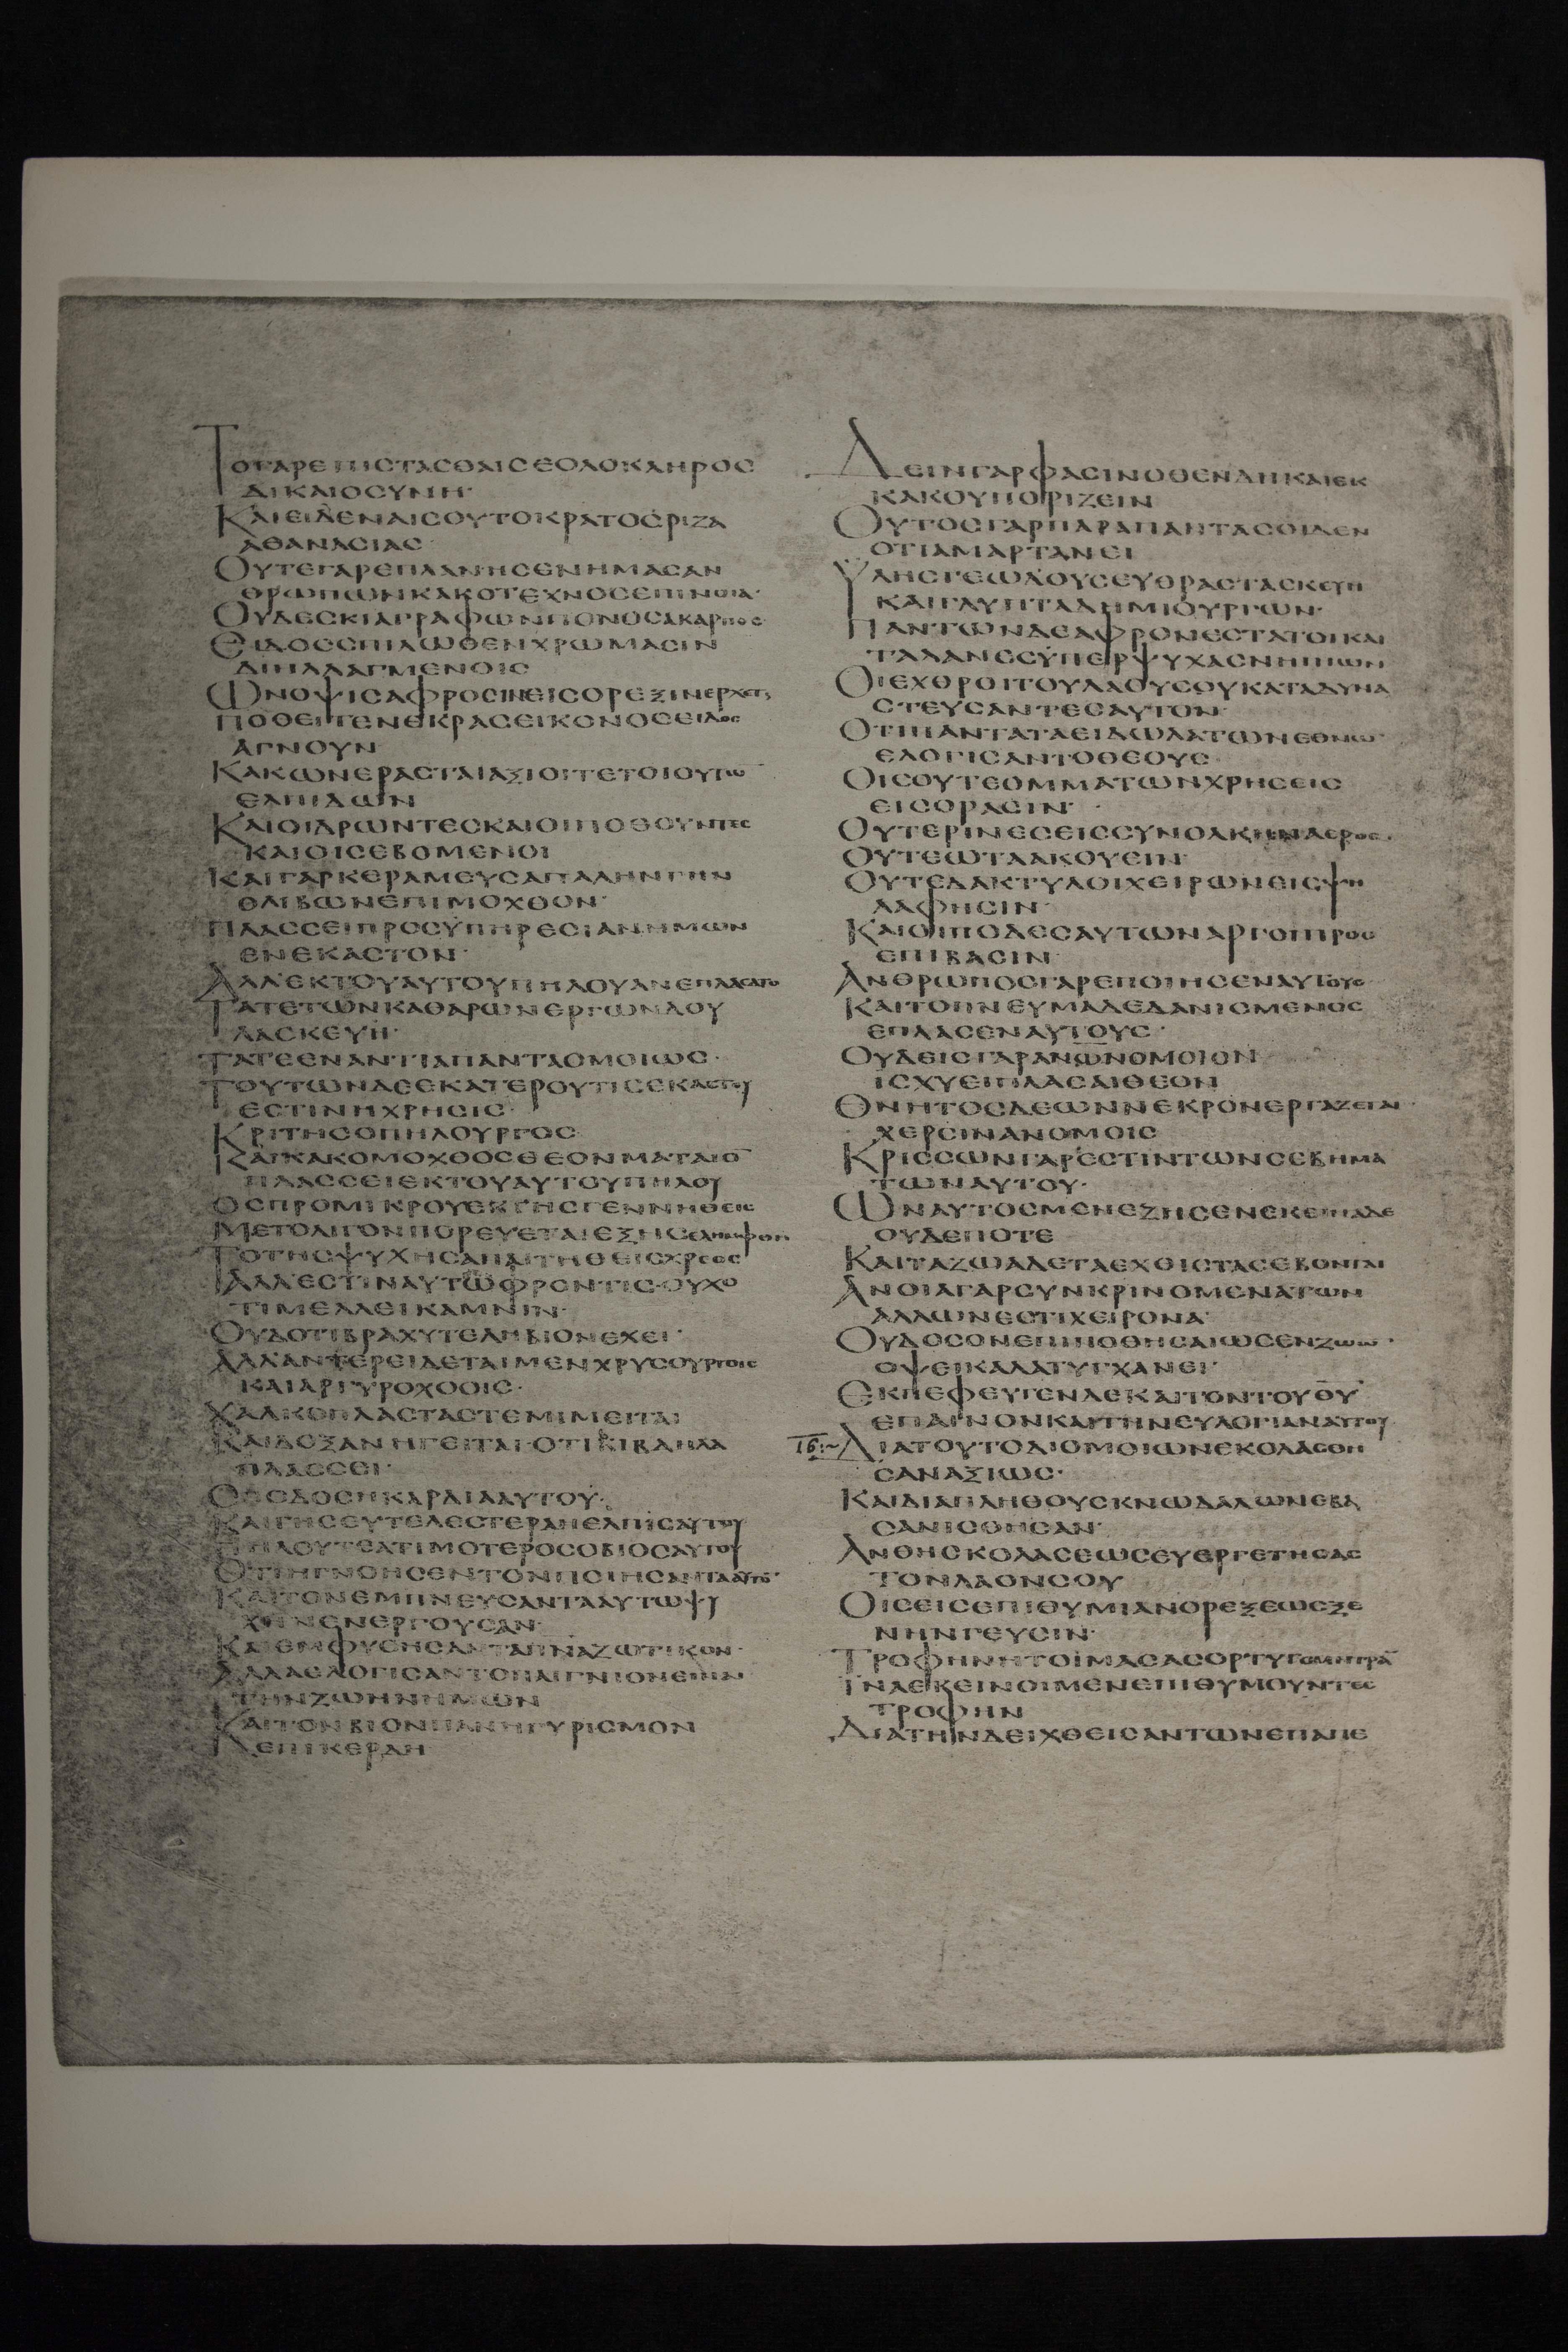 ΤΟΓΑΡΕΠΙCΤΑCΘΑΙCΕΟΛΟΚΛΗΡΟC
ΔΙΚΑΙΟCΥΝΗ·
ΚΑΙΕΙΔΕΝΑΙCΟΥΤΟΚΡΑΤΟCΡΙΖΑ
ΑΘΑΝΑCΙΑC
ΟΥΤΕΓΑΡΕΠΛΑΝΗCΕΝΗΜΑCΑΝ
ΘΡΩΠΩΝΚΑΚΟΤΕΧΝΟCΕΠΙΝΟΙΑ·
ΟΥΔΕCΚΙΑΓΡΑΦΩΝΠΟΝΟCΑΚΑΡΠΟC
ΕΙΔΟCCΠΙΛΩΘΕΝΧΡΩΜΑCΙΝ
ΔΙΗΛΛΑΓΜΕΝΟΙC
ΩΝΟΨΙCΑΦΡΟCΙΝΕΙCΟΡΕΞΙΝΕΡΧΕΤΑΙ
ΠΟΘΕΙΤΕΝΕΚΡΑCΕΙΚΟΝΟCΕΙΔΟC
ΑΠΝΟΥΝ
ΚΑΚΩΝΕΡΑCΤΑΙΑΞΙΟΙΤΕΤΟΙΟΥΤΩ̅
ΕΛΠΙΔΩΝ
ΚΑΙΟΙΔΡΩΝΤΕCΚΑΙΟΙΠΟΘΟΥΝΤΕC
ΚΑΙΟΙCΕΒΟΜΕΝΟΙ
ΚΑΙΓΑΡΚΕΡΑΜΕΥCΑΠΑΛΗΝΓΗΝ
ΘΛΙΒΩΝΕΠΙΜΟΧΘΟΝ·
ΠΛΑCCΕΙΠΡΟCΫΠΗΡΕCΙΑΝΗΜΩΝ
ΕΝΕΚΑCΤΟΝ·
ΑΛΛΕΚΤΟΥΑΥΤΟΥΠΗΛΟΥΑΝΕΠΛΑCΑΤΟ
ΤΑΤΕΤΩΝΚΑΘΑΡΩΝΕΡΓΩΝΔΟΥ
ΛΑCΚΕΥΗ·
ΤΑΤΕΕΝΑΝΤΙΑΠΑΝΤΑΟΜΟΙΩC·
ΤΟΥΤΩΝΔΕΕΚΑΤΕΡΟΥΤΙCΕΚΑCΤΟΥ
ΕCΤΙΝΗΧΡΗCΙC·
ΚΡΙΤΗCΟΠΗΛΟΥΡΓΟC
ΚΑΙΚΑΚΟΜΟΧΘΟCΘΕΟΝΜΑΤΑΙΟ̅
ΠΛΑCCΕΙΕΚΤΟΥΑΥΤΟΥΠΗΛΟΥ
ΟCΠΡΟΜΙΚΡΟΥΕΚΓΗCΓΕΝΝΗΘΕΙC
ΜΕΤΟΛΙΓΟΝΠΟΡΕΥΕΤΑΙΕΞΗCΕΛΗΜΦΘΗ
ΤΟΤΗCΨΥΧΗCΑΠΑΙΤΗΘΕΙCΧΡΕΟC
ΑΛΛΕCΤΙΝΑΥΤΩΦΡΟΝΤΙCΟΥΧΟ
ΤΙΜΕΛΛΕΙΚΑΜΝΙΝ·
ΟΥΔΟΤΙΒΡΑΧΥΤΕΛΗΒΙΟΝΕΧΕΙ·
ΑΛΛΑΝΤΕΡΕΙΔΕΤΑΙΜΕΝΧΡΥCΟΥΡΓΟΙC
ΚΑΙΑΡΓΥΡΟΧΟΟΙC·
ΧΑΛΚΟΠΛΑCΤΑCΤΕΜΙΜΕΙΤΑΙ
ΚΑΙΔΟΞΑΝΗΓΕΙΤΑΙΟΤΙΚΙΒΔΗΛΑ
ΠΛΑCCΕΙ·
CΠΟΔΟCΗΚΑΡΔΙΑΑΥΤΟΥ·
ΚΑΙΓΗCΕΥΤΕΛΕCΤΕΡΑΗΕΛΠΙCΑΥΤΟΥ
ΠΗΛΟΥΤΕΑΤΙΜΟΤΕΡΟCΟΒΙΟCΑΥΤΟΥ
ΟΤΙΗΓΝΟΗCΕΝΤΟΝΠΟΙΗCΑΝΤΑΑΥΤΟ̅·
ΚΑΙΤΟΝΕΜΠΝΕΥCΑΝΤΑΑΥΤΩΨΥ
ΧΗΝΕΝΕΡΓΟΥCΑΝ·
ΚΑΙΕΜΦΥCΗCΑΝΤΑΠΝΑΖΩΤΙΚΟΝ·
ΑΛΛΑΕΛΟΓΙCΑΝΤΟΠΑΙΓΝΙΟΝΕΙΝΑΙ
ΤΗΝΖΩΗΝΗΜΩΝ
ΚΑΙΤΟΝΒΙΟΝΠΑΝΗΓΥΡΙCΜΟΝ
ΕΠΙΚΕΡΔΗ
ΔΕΙΝΓΑΡΦΑCΙΝΟΘΕΝΔΗΚΑΙΕΚ
ΚΑΚΟΥΠΟΡΙΖΕΙΝ
ΟΥΤΟCΓΑΡΠΑΡΑΠΑΝΤΑCΟΙΔΕΝ
ΟΤΙΑΜΑΡΤΑΝΕΙ
ΫΛΗCΓΕΩΔΟΥCΕΥΘΡΑCΤΑCΚΕΥΗ
ΚΑΙΓΛΥΠΤΑΔΗΜΙΟΥΡΓΩΝ·
ΠΑΝΤΩΝΔΕΑΦΡΟΝΕCΤΑΤΟΙΚΑΙ
ΤΑΛΑΝΕCΫΠΕΡΨΥΧΑCΝΗΠΙΩΝ
ΟΙΕΧΘΡΟΙΤΟΥΛΑΟΥCΟΥΚΑΤΑΔΥΝΑ
CΤΕΥCΑΝΤΕCΑΥΤΟΝ·
ΟΤΙΠΑΝΤΑΤΑΕΙΔΩΛΑΤΩΝΕΘΝΩ̅
ΕΛΟΓΙCΑΝΤΟΘΕΟΥC·
ΟΙCΟΥΤΕΟΜΜΑΤΩΝΧΡΗCΕΙC
ΕΙCΟΡΑCΙΝ·
ΟΥΤΕΡΙΝΕCΕΙCCΥΝΟΛΚΗΝΑΕΡΟC·
ΟΥΤΕΩΤΑΑΚΟΥΕΙΝ·
ΟΥΤΕΔΑΚΤΥΛΟΙΧΕΙΡΩΝΕΙCΨΗ
ΛΑΦΗCΙΝ·
ΚΑΙΟΙΠΟΔΕCΑΥΤΩΝΑΡΓΟΙΠΡΟC
ΕΠΙΒΑCΙΝ·
ΑΝΘΡΩΠΟCΓΑΡΕΠΟΙΗCΕΝΑΥΤΟΥC
ΚΑΙΤΟΠΝΕΥΜΑΔΕΔΑΝΙCΜΕΝΟC
ΕΠΛΑCΕΝΑΥΤΟΥC·
ΟΥΔΕΙCΓΑΡΑΝΩ̅ΝΟΜΟΙΟΝ
ΙCΧΥΕΙΠΛΑCΑΙΘΕΟΝ
ΘΝΗΤΟCΔΕΩΝΝΕΚΡΟΝΕΡΓΑΖΕΤΑΙ·
ΧΕΡCΙΝΑΝΟΜΟΙC
ΚΡΙCCΩΝΓΑΡΕCΤΙΝΤΩΝCΕΒΗΜΑ
ΤΩΝΑΥΤΟΥ·
ΩΝΑΥΤΟCΜΕΝΕΖΗCΕΝΕΚΕΙΝΑΔΕ
ΟΥΔΕΠΟΤΕ
ΚΑΙΤΑΖΩΑΔΕΤΑΕΧΘΙCΤΑCΕΒΟΝΤΑΙ
ΑΝΟΙΑΓΑΡCΥΝΚΡΙΝΟΜΕΝΑΤΩΝ
ΑΛΛΩΝΕCΤΙΧΕΙΡΟΝΑ·
ΟΥΔΟCΟΝΕΠΙΠΟΘΗCΑΙΩCΕΝΖΩΩ̅·
ΟΨΕΙΚΑΛΑΤΥΓΧΑΝΕΙ·
ΕΚΠΕΦΕΥΓΕΝΔΕΚΑΙΤΟΝΤΟΥΘ̅Υ̅
ΕΠΑΙΝΟΝΚΑΙΤΗΝΕΥΛΟΓΙΑΝΑΥΤΟΥ
Ι̅Ϛ̅:~ ΔΙΑΤΟΥΤΟΔΙΟΜΟΙΩΝΕΚΟΛΑCΘΗ
CΑΝΑΞΙΩC·
ΚΑΙΔΙΑΠΛΗΘΟΥCΚΝΩΔΑΛΩΝΕΒΑ
CΑΝΙCΘΗCΑΝ·
ΑΝΘΗCΚΟΛΑCΕΩCΕΥΕΡΓΕΤΗCΑC
ΤΟΝΛΑΟΝCΟΥ
ΟΙCΕΙCΕΠΙΘΥΜΙΑΝΟΡΕΞΕΩCΞΕ
ΝΗΝΓΕΥCΙΝ·
ΤΡΟΦΗΝΗΤΟΙΜΑCΑCΟΡΤΥΓΟΜΗΤΡΑ̅
ΪΝΑΕΚΕΙΝΟΙΜΕΝΕΠΙΘΥΜΟΥΝΤΕC
ΤΡΟΦΗΝ
ΔΙΑΤΗΝΔΕΙΧΘΕΙCΑΝΤΩΝΕΠΑΠΕ